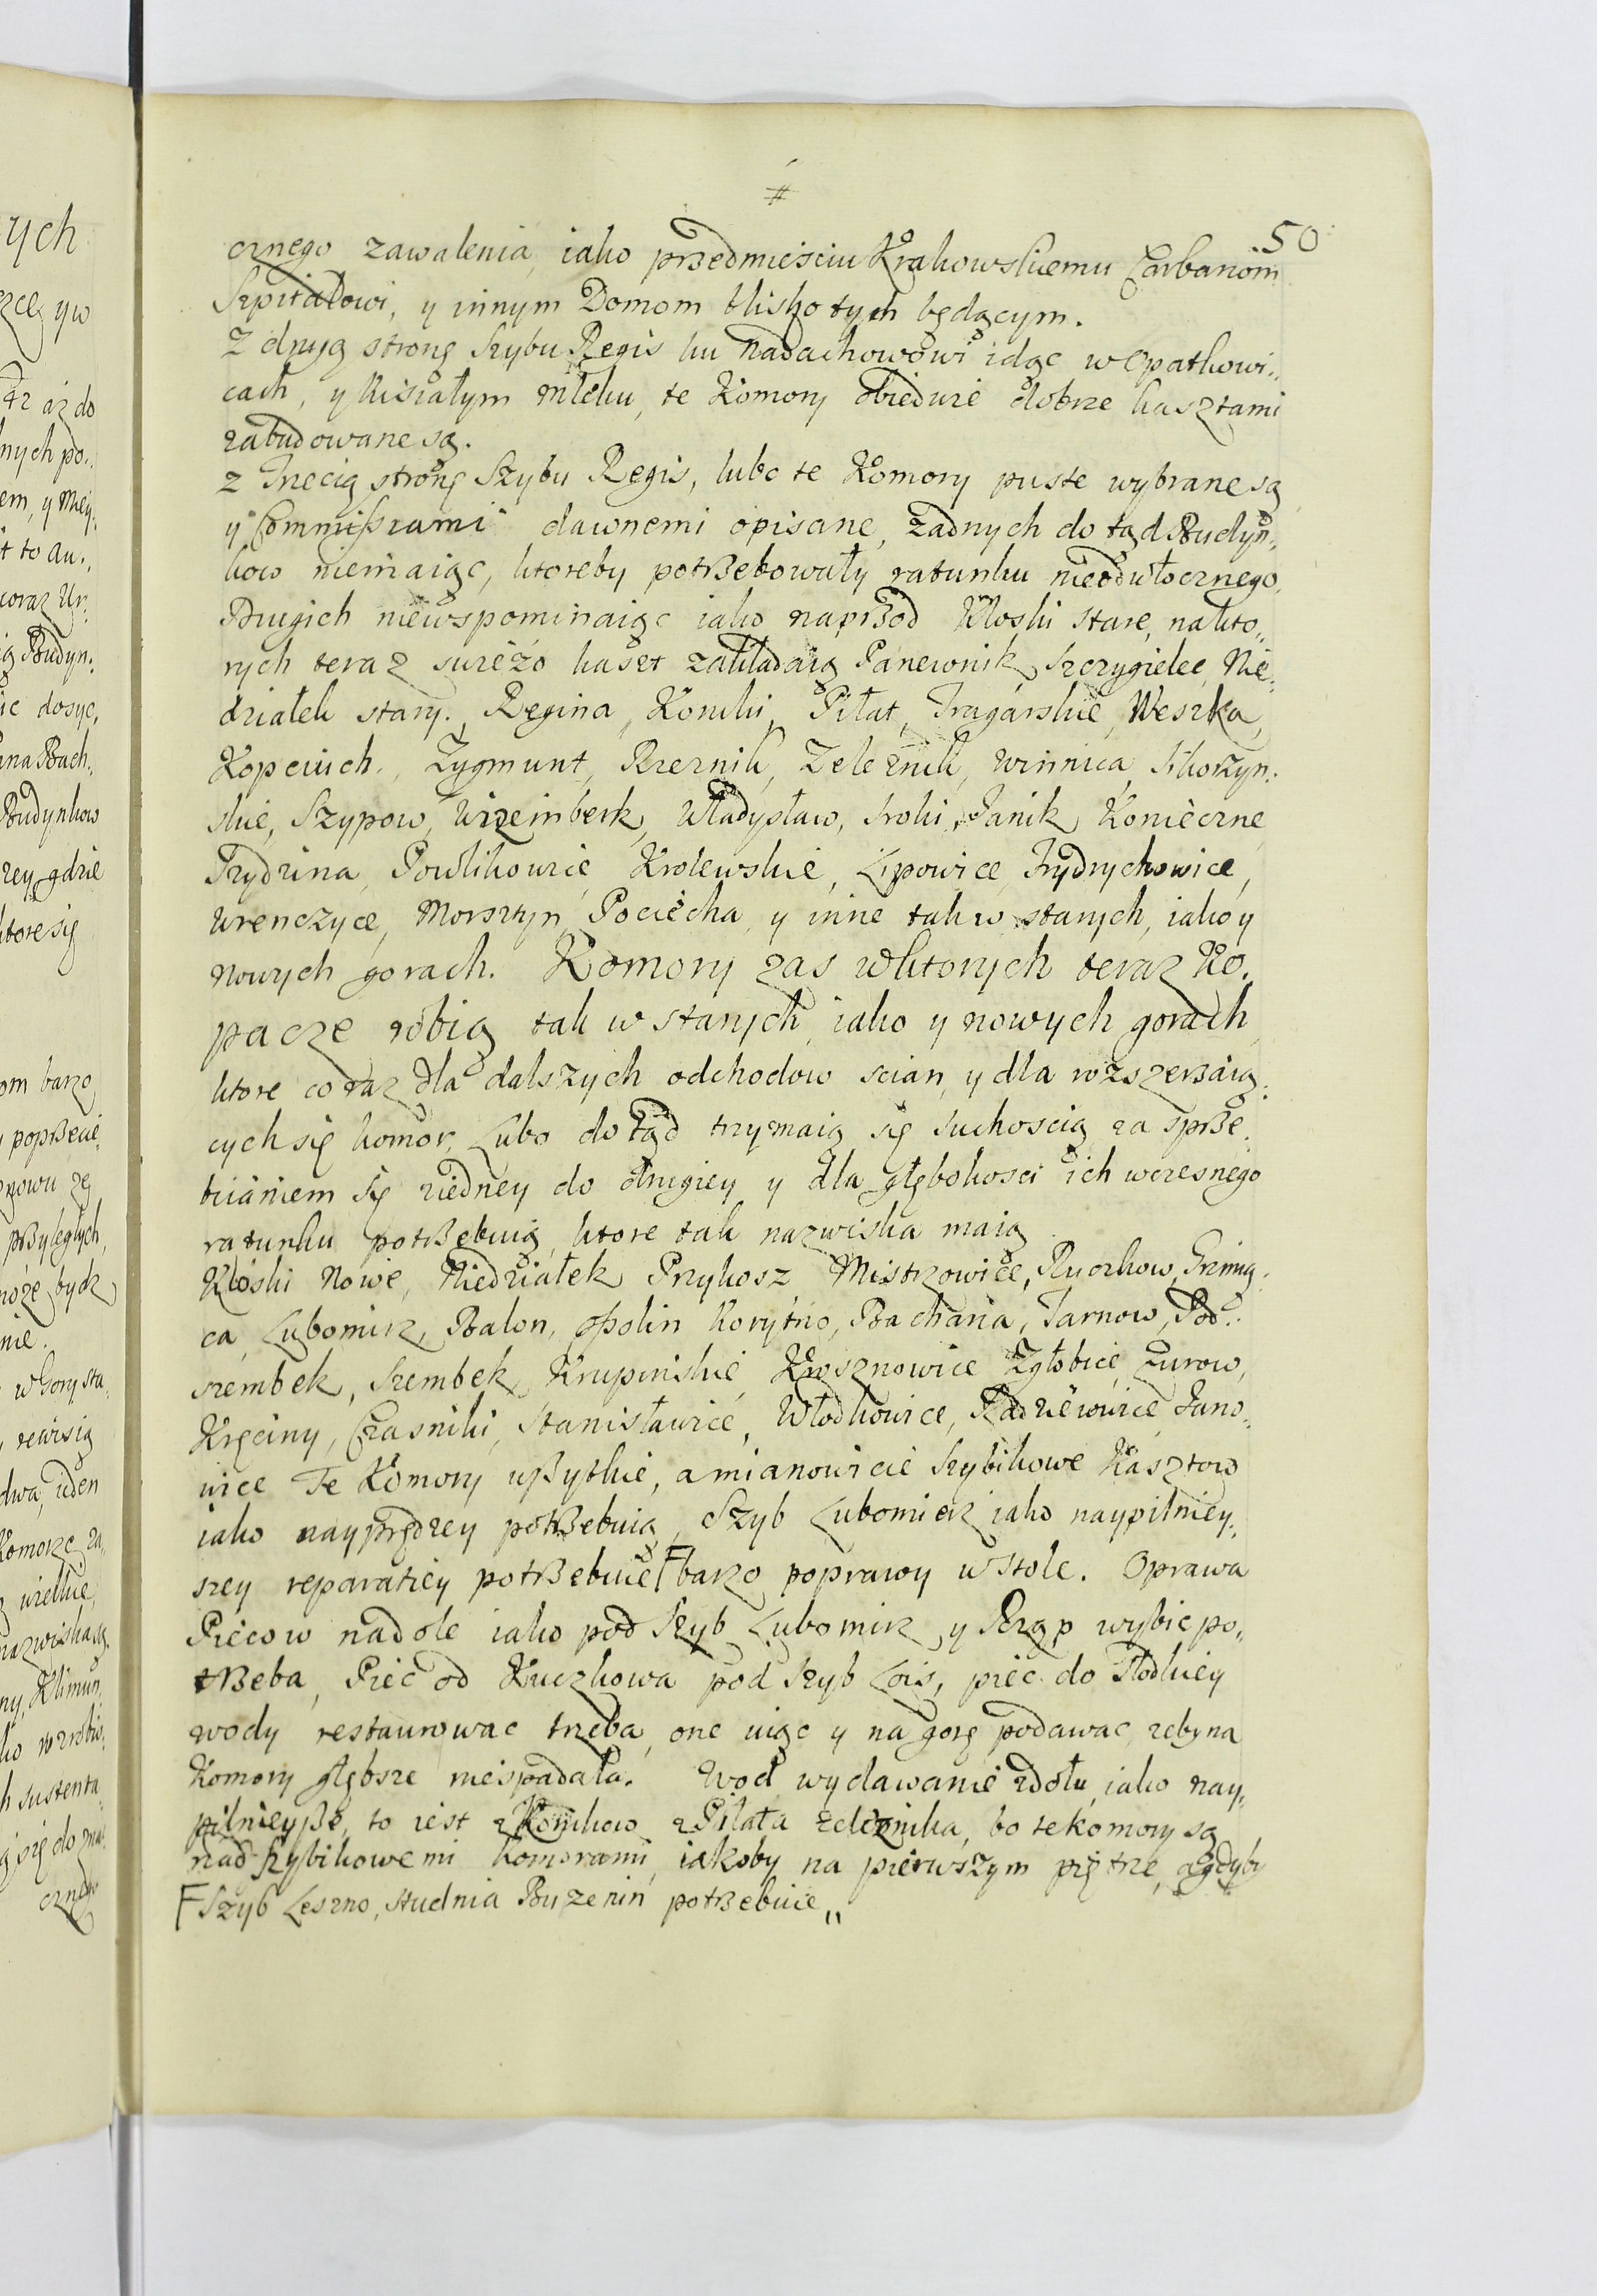 #
50
cznego zawalenia, iako przedmieściu Krakowskiemu Carbariom
Szpitalowi, y innym Domom blisko tych będącym.
Z drugą stronę Szybu Regis ku Nadachowowi idąc w Opatkowi„
cach, y Kisiałym Mleku, te Komory obiedwie dobrze kasztami
zabudowane są.
z Trzecią stronę Szybu Regis, lubo te Komory puste wybrane są
y Commissiami dawnemi opisane, żadnych do tąd Budyn„
kow niemaiąc, ktoreby potrzebowały ratunku nieodwłocznego,
Drugich niewspominaiąc iako naprzod Kłoski stare, na kto„
rych teraz swieżo kaszt zakładaią Panewnik, Szczygielec, Nie„
działek stary. Regina, Koniki, Piłat, Tragarskie, Weszka,
Kopciuch, Zygmunt, Rzeznik, Zeleznik, Winnica Skorzyn„
skie, Szypow, Wizeimberk, Władysław, Sroki, Janik Konieczne
Trydzina, Powlikowice Krolewskie, Lipowice, Frydrychowice,
Wrenczyce, Morsztyn, Pociecha, y inne tak w starych, iako y
nowych gorach. Komory zas w ktorych teraz Ko„
pacze robią tak w starych, iako y nowych gorach,
ktore coraz dla dalszych odchodow scian, y dla rozszerzaią„
cych się komor, Lubo do tąd trzymaią się suchoscią za sprze„
biianiem się ziedney do drugiey y dla głębokosci ich wczesnego
ratunku potrzebuią, ktore tak nazwiska maią
Kłoski Nowe, Niedziałek Przykosz, Mistrzowice, Ruczkow, Grimią„
ca, Lubomirz, Balon, Opolin Korytno, Bachania, Tarnow, Pod„
szembek, Szembek Krupinskie Krosznowice Zgłobice, Zurow,
Kręciny, Czasniki, Stanisławice, Włodkowice, Radziewice Jano„
wice Te Komory wszytkie, a mianowicie Szybikowe Kasztow
iako nayprędzey potrzebuią, Szyb Lubomierz iako naypilniey„
szey reparatiey potrzebuie F barzo poprawy w stole. Oprawa
Piecow nadole iako pod Szyb Lubomirz, y Rząp wybic po„
trzeba, Piec od Kuczkowa pod Szyb Lois, piec do Słodkiey
wody restaurowac trzeba, one uiąc y na gorę podawac, zeby na
Komory głębsze niespadała. Wod wydawanie zdołu, iako nay„
pilnieysze, to iest z Konikow z Piłata zelaznika, bo te komory są
nad Szybikowemi komorami, iakoby na pierwszym piętrze, a gdyby
F Szyb Leszno, studnia Buzenin potrzebuie„